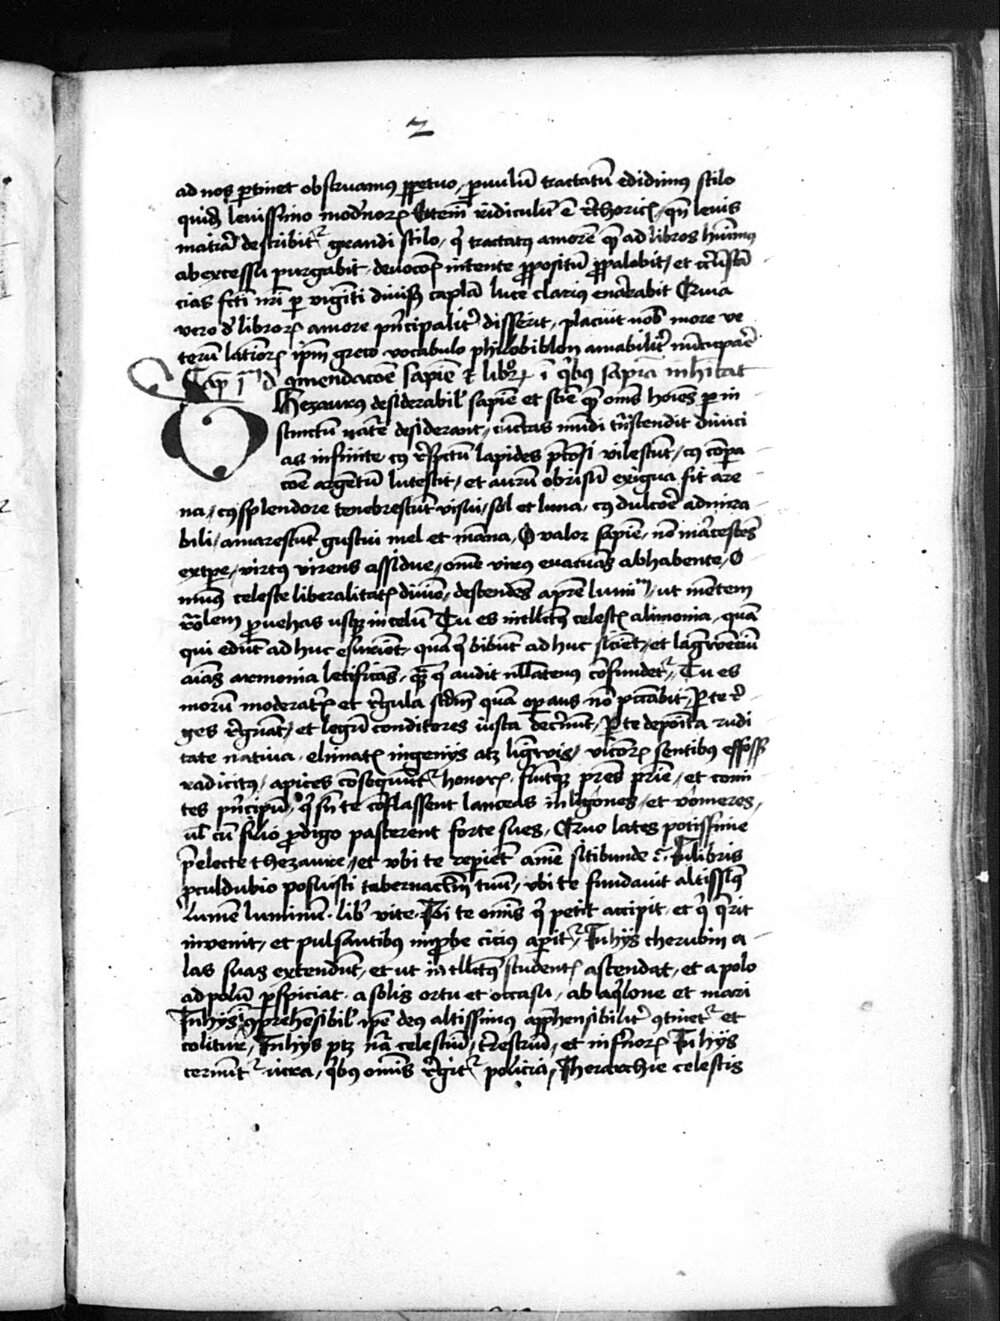 2
ad nos ꝑtinet obseruamus ꝑpetuo, ꝑuulū tractatū edidimus stilo
quidē leuissimo modernoꝝ Etenī ridiculū ē rethoricꝭ, qn̄ leuis
mat̓ia describit᷑ grandi stilo, qi tractatus amorē quē ad libros hūimus
ab excessu purgabit, deuocōꝭ intente ꝓpositū ꝓpalabit, et cc̓ūstā
cias fc̄ti nr̄i ꝑ viginti diuisꝭ capla luce clarius enarrabit Quia
vero d̓ libroꝝ amore pn̓cipalit̓ disserit, placuit nob̓ more ve
terū latinoꝝ ip̄m greco vocabulo philobiblon amabilit̓ nūcupare
Cap jm d̓ ꝯmendacōe sapiē ⁊ libroꝝ ī qi̓bus sapīa inhītat
Thezaurus desiderabil̓ sapiē et sciē quē om̄s hoīes ꝑ in
stinctū natᷓe desiderant, cunctas mūdi tn̄scendit diuici
as infinite cuius respectu lapides p̄tosi vilescūt, cuius cōꝑa
cōe argētū lutescit, et aurū obrisū exigua fit are
na, cuius splendore tenebrescūt visui, sol et luna, cuius dulcore admira
bili, amarescūt gustui mel et māna, O valor sapiē, nō marcescēs
ex tꝑe, virtus virens assidue, om̄e virus euacuās ab habente, O
munus celeste liberalitatꝭ diuīe, descendēs a pr̄e lumīm, ut mētem
rōlem ꝓuehas usqꝫ in celū Tu es intllc̄tus celestꝭ alimonia, quā
qui edūt ad huc esurient, quā qi bibūt ad huc sicient, et langwenciū
aīas armonia letificās, quā qi audit nll̄atenus cōfundet᷑, Tu es
morū moderatꝭ et regula scd̄m quā oꝑans nō pctābit, ꝑ te re
ges regnāt, et legū conditores iusta decernūt, ꝑ te deposita rudi
tate natiua, elimatꝭ ingenijs atqꝫ lingwis, vicioꝝ sentibus effossꝭ
radicitus, apices cōsequūt᷑ honorꝭ, fiūtqꝫ pr̄es pr̄ie, et comi
tes pn̓cipū, qi sn̄ te cōflassent lanceas in ligones, et vomeres,
ul̓ cū filio ꝓdigo pascerent forte sues, Quo lates potissime
p̄electe thezaure, et vbi te reꝑient aīe sitibunde ⁊c̓, In libris
ꝓculdubio posuisti tabernaclm̄ tuū, vbi te fundauit altissimus
lumē luminū, lib̓ vite, Ibi te om̄is qi petit accipit, et qi querit
inuenit, et pulsantibus inꝓbe cicius aꝑit᷑, In hijs cherubin a
las suas extendūt, et ut intllc̄tus studentꝭ ascendat, et a polo
ad polū ꝓspiciat, a solis ortu et occasu, ab aqi̓lone et mari
In hijs īcōprehēsibil̓ ip̄e deus altissimus app̄hensibilit̓ ꝯtinet᷑ et
colitur, In hijs ptꝫ nā celestiū, terrestriū, et infernoꝝ In hijs
cernūt᷑ iura, qi̓bus om̄is regit᷑ policia, Iherarchie celestis